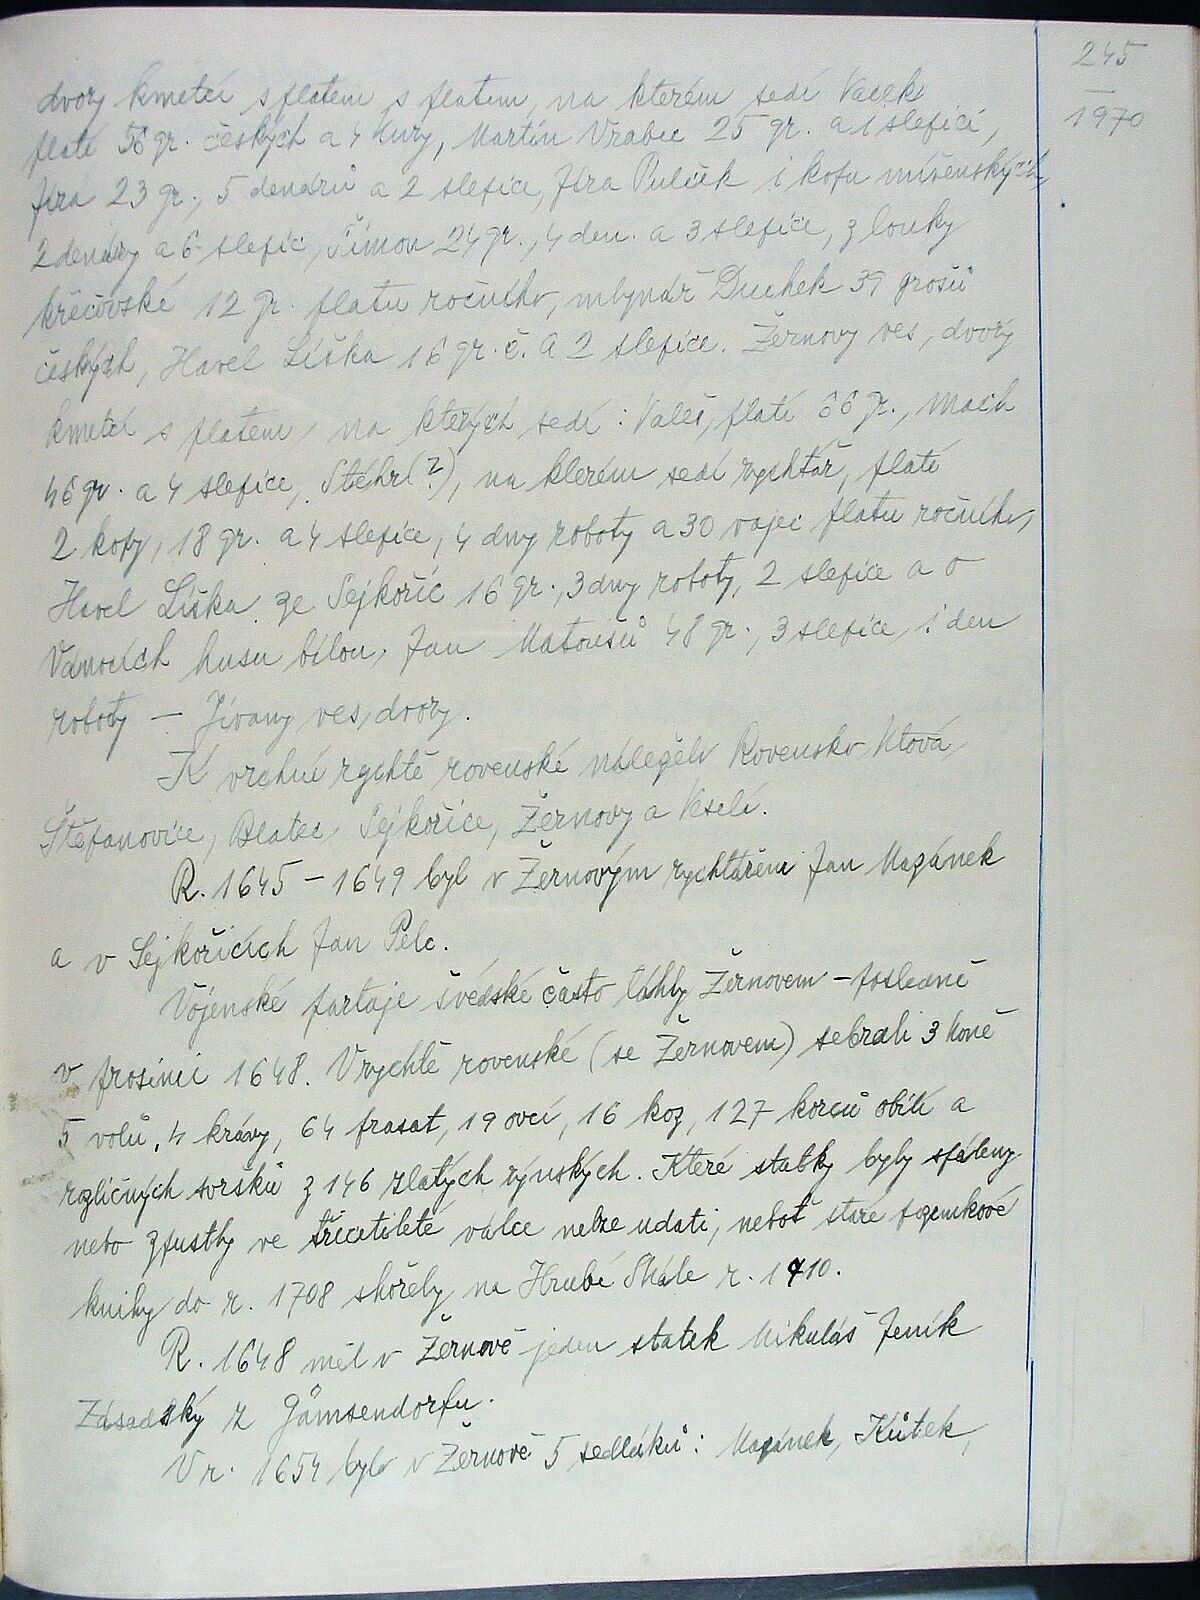 245
1970
dvory kmetcí s platem s platem, na kterém sedí Vacek
platí 56 gr. českých a 4 kury, Martin Vrabec 25 gr. a 1 slepici,
Jíra 23 gr., 5 denárů a 2 slepice, Jíra Puliček 1 kopu míšenských,
2 denáry a 6 slepic, Šimon 24 gr., 4 den. a 3 slepice, z louky
křečovské 12 gr. platu ročního, mlynář Duchek 39 grošů
českých, Havel Liška 16 gr. č. a 2 slepice. Žernovy ves, dvory
kmetcí s platem, na kterých sedí: Valeš, platí 66 gr., Mach
46 gr. a 4 slepice, Stéhr(?), na kterém sedí rychtář, platí
2 kopy, 18 gr. a 4 slepice, 4 dny roboty a 30 vajec platu ročního,
Havel Liška ze Sejkořic 16 gr., 3 dny roboty, 2 slepice a o
Vánocích husu bílou, Jan Matoušů 48 gr., 3 slepice, 1 den
roboty – Jivany ves, dvory.
K vrchní rychtě rovenské náleželo Rovensko, Ktová,
Štěfanovice, Blatec, Sejkořice, Žernovy a Veselí.
R. 1645 – 1649 byl v Žernovým rychtářem Jan Mazánek
a v Sejkořicích Jan Pelc.
Vojenské partaje švédské často táhly Žernovem – posledně
v prosinci 1648. V rychtě rovenské (se Žernovem) sebrali 3 koně
5 volů, 4 krávy, 64 prasat, 19 ovcí, 16 koz, 127 korců obilí a
rozličných svršků z 146 zlatých rýnských. Které statky byly spáleny
nebo zpustly ve třicetileté válce nelze udati, neboť staré pozemkové
knihy do r. 1708 shořely na Hrubé Skále r. 1710.
R. 1648 měl v Žernově jeden statek Mikuláš Jeník
Zásadský z Gämsendorfu.
V r. 1654 bylo v Žernově 5 sedláků: Mazánek, Kůtek,